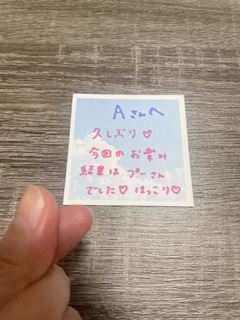 Aさんへ
久しぶり♡
今回のお楽み
結果はプーさん
でした♡ ほっこり♡